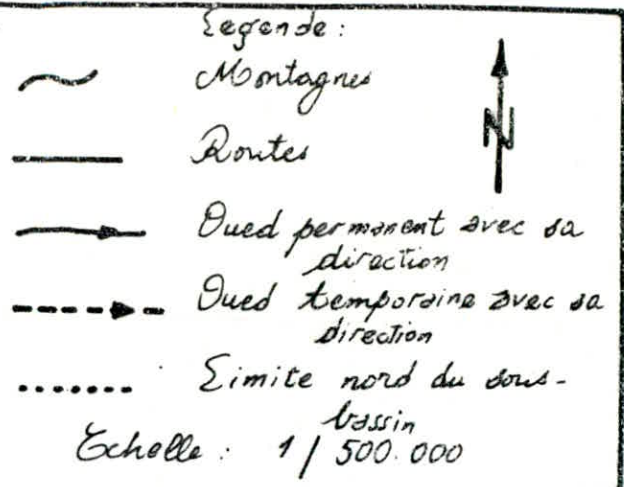 Legende :
Montagnes
N
Routes
Oued permanent avec sa
direction
Oued temporaire avec sa
direction
Limite nord du sous-
bassin
Echelle : 1 / 500.000